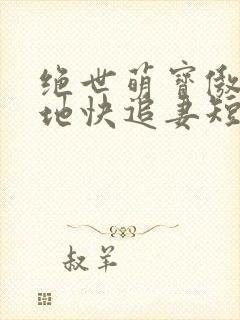 绝世萌宝傲
地快追妻短
叔羊